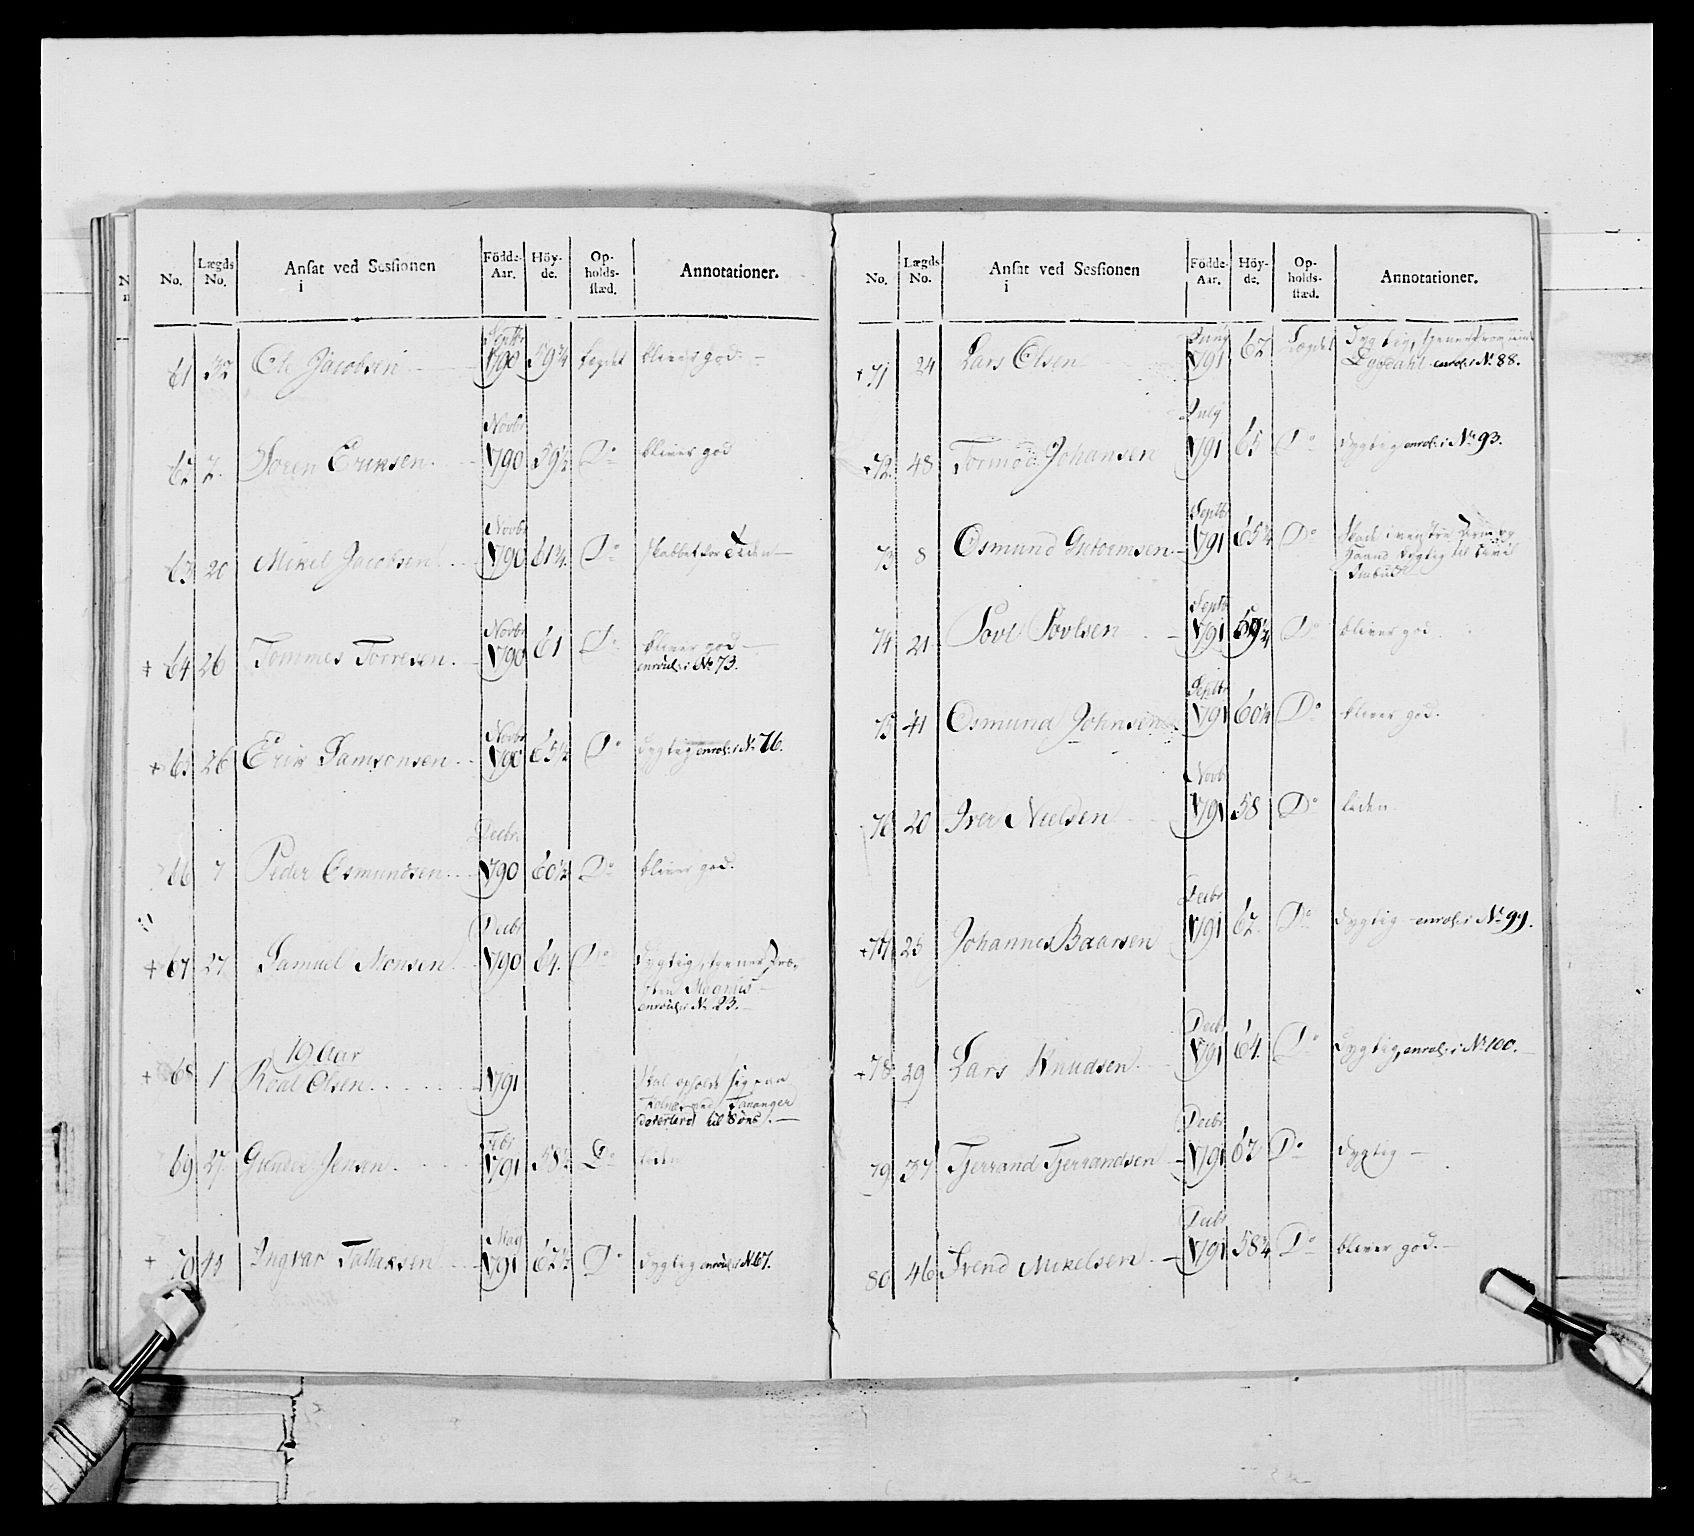 No. Lægds No. Ansat ved Sessionen i Födde-Aar. Höy-de. Op-holds-stæd. Annotationer.
61 32 Ole Jacobsen Septbr 1790 59¼ Lægdet bliver god.
62 7 Soren Eriksen Novbr 1790 59½ Do bliver god
63 20 Mikel Jacobsen Novbr 1790 61¼ Do skabbet for Tiden
64 26 Tommes Torresen Novbr 1790 61 Do bliver god
enroul: i No 73.
65 26 Erik Samsonsen Novbr 1790 65½ Do dygtig enrol: i No 76.
66 7 Peder Osmundsen Decbr 1790 60½ Do bliver god.
67 27 Samuel Monsen Decbr 1790 64. Do Dygtig, tjener
enroul: i No 23.
19 Aar
68 1 Roal Olsen 1791 skal opholde sig
ved Tananger
til Söes.
69 27 Gunder Jensen Febr 1791 58½ Do liden
70 44 Ingvar Tallaksen May 1791 62½ Do Dygtig enroul: i No 67.
No. Lægds No. Ansat ved Sessionen i Födde-Aar. Höy-de. Op-holds-stæd. Annotationer.
71 24 Lars Olsen Juny 1791 62 Lægdet Dygtig, tjener
enrol: i No 88.
72 48 Tormod Johansen July 1791 65 Do dygtig enrol: i No 93.
73 8 Osmund Guttormsen Septbr 1791 65¼ Do Skade i venstre Arm og
Haand dygtig til Civil
Embud
74 21 Povl Povlsen Septb 1791 59¼ Do bliver god
75 41 Osmund Johnsen Septbr 1791 60¼ Do bliver god.
76 20 Iver Nielsen Novb 1791 58 Do liden
77 25 Johannes Baarsen Decbr 1791 62. Do dygtig enrol: i No 99.
78 29 Lars Knudsen Decbr 1791 64. Do Dygtig, enrol: i No 100.
79 37 Tjerrand Tjerrandsen Decbr 1791 62 Do dygtig
80 46 Svend Mikelsen Decbr 1791 58¼ Do bliver god.